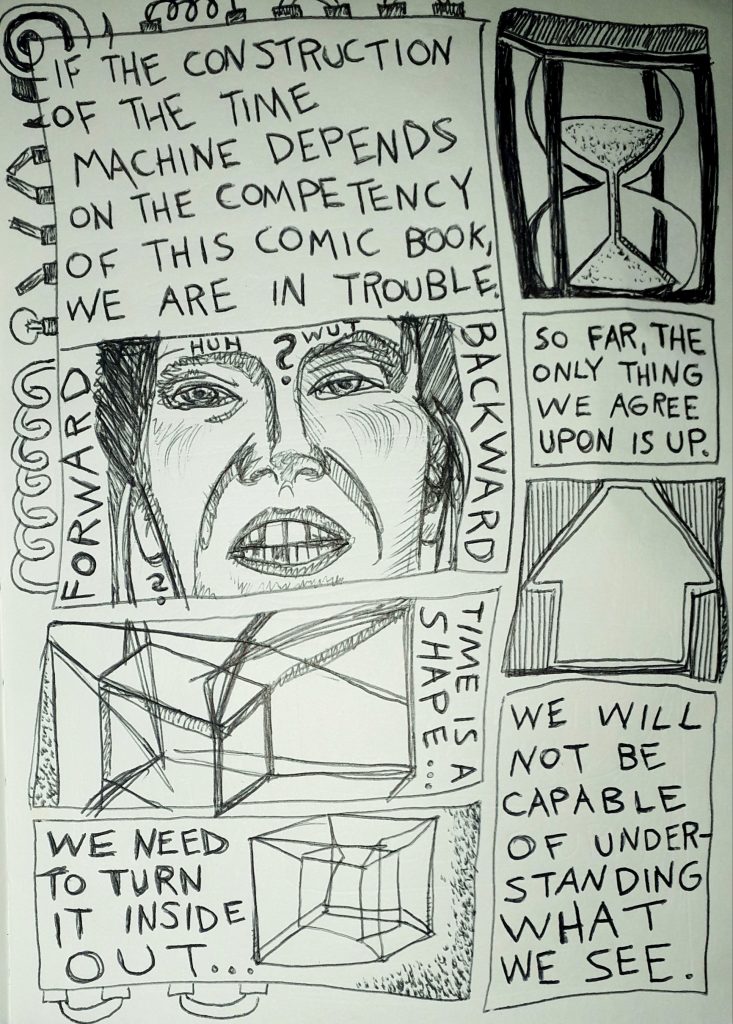 IF THE CONSTRUCTION
OF THE TIME
MACHINE DEPENDS
ON THE COMPETENCY
OF THIS COMIC BOOK,
WE ARE IN TROUBLE.
HUH ? WUT
FORWARD
BACKWARD
?
SO FAR, THE
ONLY THING
WE AGREE
UPON IS UP.
TIME IS A
SHAPE...
WE NEED
TO TURN
IT INSIDE
OUT...
WE WILL
NOT BE
CAPABLE
OF UNDER-
STANDING
WHAT
WE SEE.